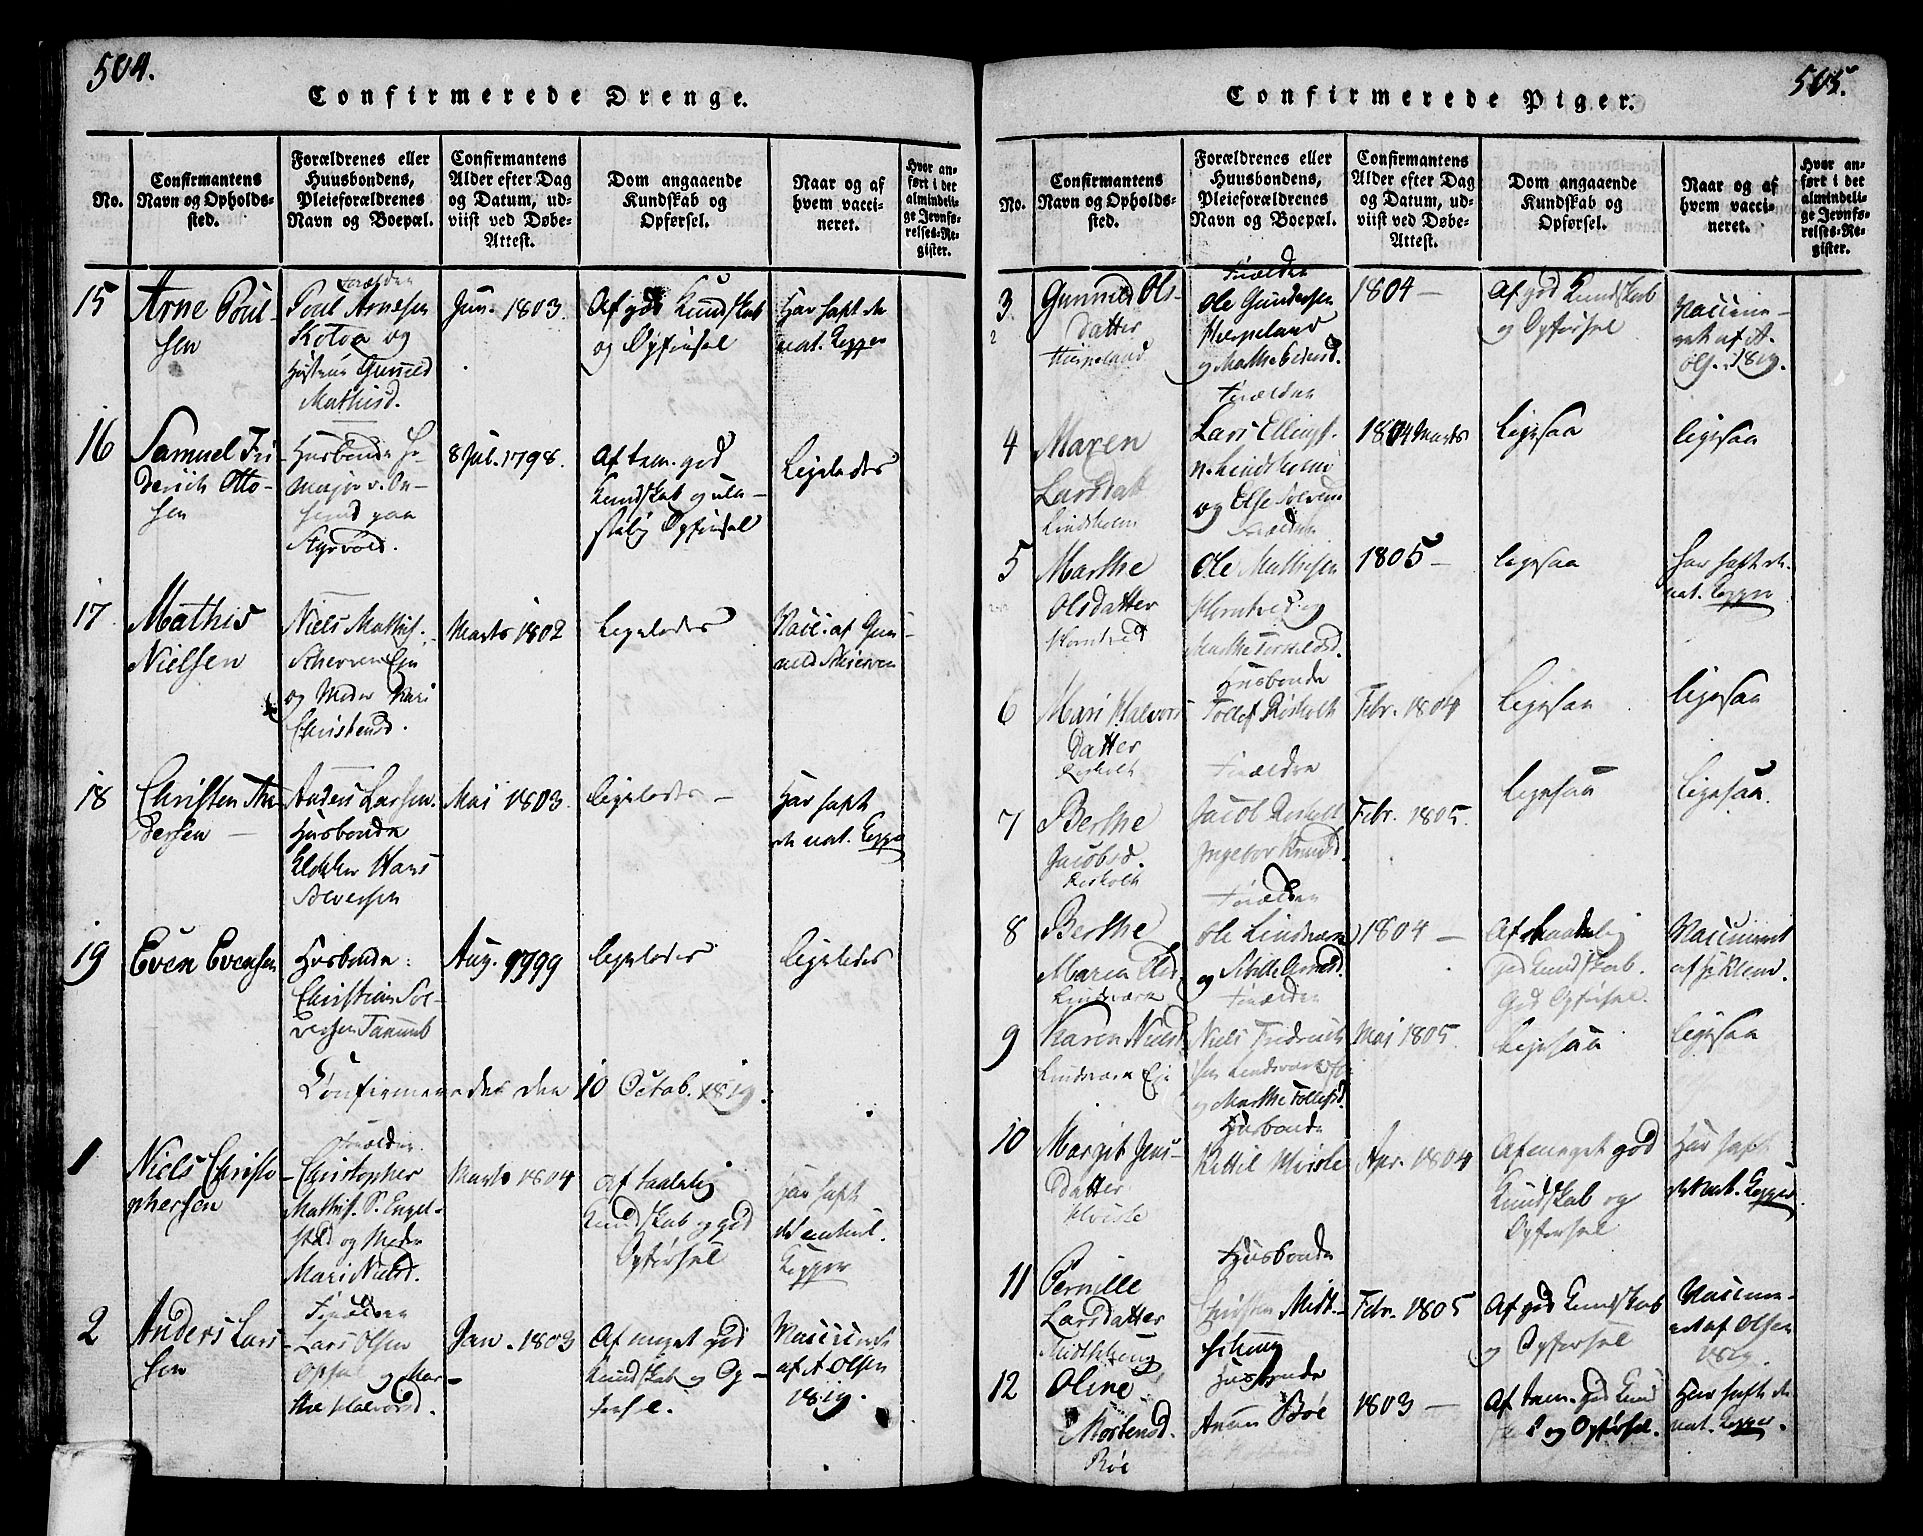 504.
Confirmerede Drenge.
No.
Confirmantens
Navn og Opholds-
sted.
Forældrenes eller
Huusbondens,
Pleieforældrenes
Navn og Boepæl.
Confirmantens
Alder efter Dag
og Datum, ud-
viist ved Døbe-
Attest.
Dom angaaende
Kundskab og
Opførsel.
Naar og af
hvem vacci-
neret.
Hvor an-
ført i det
almindeli-
ge Jevnfø-
relses-Re-
gister.
15
Arne Poul-
sen
Forældre
Poul Arnesen
og
Hustrue Gunnild
Mathisd.
Jun. 1803.
Af god Kundskab
og Opførsel
Har haft de
nat. Kopper
16
Samuel Fri-
derich Otto-
sen
Husbonde
Major v.
paa
Styrvold.
8 Jul. 1798.
Af tem. god
Kundskab og
Opførsel
Ligeledes
17
Mathis
Nielsen
Niels Mathis.
Scherven Eje
og Moder Kari
Christensd.
Marts 1802
Ligeledes
Vacc. af Gun-
nild Scherven
18
Christen An-
dersen
Anders Larsen.
Husbonde
Klokker Hans
Mai 1803.
ligeledes -
Har haft
de nat. Kopper
19
Even Evensen
Husbonde:
Christian Sol-
versen Tanum
Aug. 1799
ligeledes
ligeledes
Confirmerede den 10 Octob. 1819.
1
Niels Christo
phersen
Forældre
Christopher
Mathis. S. Engel-
stad og Moder
Mari Nielsd.
Marts 1804
Af taalelig
Kundskab og god
Opførsel
Har haft
de naturl.
Kopper
2
Anders Lars
sen
Forældre
Lars Olsen
og Mar-
the Halvorsd.
Jan. 1803
Af meget god
Kundskab og Op-
førsel.
Vaccineret
af A Olsen
1819.
505.
Confirmerede Piger.
No.
Confirmantens
Navn og Opholds-
sted.
Forældrenes eller
Huusbondens,
Pleieforældrenes
Navn og Boepæl.
Confirmantens
Alder efter Dag
og Datum, ud-
viist ved Døbe-
Attest.
Dom angaaende
Kundskab og
Opførsel.
Naar og af
hvem vacci-
neret.
Hvor an-
ført i det
almindeli-
ge Jevnfø-
relses-Re-
gister.
3
Gunnild Ols-
datter
Forældre
Ole Gundersen
og Marthe
1804 -
Af god Kundskab
og Opførsel
Vaccine-
ret af A.
Ols. 1819.
4
Maren
Larsdatt
Lindholm
Forældre
Lars Ellings.
Lindholm
og Else
1804 Marts
ligesaa
ligesaa
5
Marthe
Olsdatter
Forældre
Ole Mathisen
og
Marthe
1805 -
ligesaa
Har haft de
nat. Kopper
6
Mari Halvors
datter
Røsholt
Husbonde
Tollef Røsholt
Febr. 1804
Ligesaa
ligesaa
7
Berthe
Jacobsd.
Røsholt
Forældre
Jacob Røsholt
Ingebor Knudsd.
Febr. 1805.
ligesaa
ligesaa.
8
Berthe
Maria Olsd.
Lindværn
Forældre
Ole Lindværn
og
1804 -
Af
god Kundskab.
God Opførsel.
Vaccineret
af
9
Karen Nielsd
Lindværn Eje
Forældre
Niels Fredrich
sen Lindværn Eje
og Marthe Tollefsd.
Mai 1805.
Ligesaa
ligesaa
10
Margit Jens-
datter
Husbonde
Kittil
Apr. 1804
Af meget god
Kundskab og
Opførsel
Har haft
de nat. Kopper
11
Pernille
Larsdatter
Husbonde
Febr. 1805
Af god Kundskab
og Opførsel
Vaccine-
ret af Olsen
1819.
12
Oline
Mortensd.
Böe
Husbonde
Böe
1803 -
Af tem. god Kund
og Opførsel.
Har haft de
nat. Kopper.